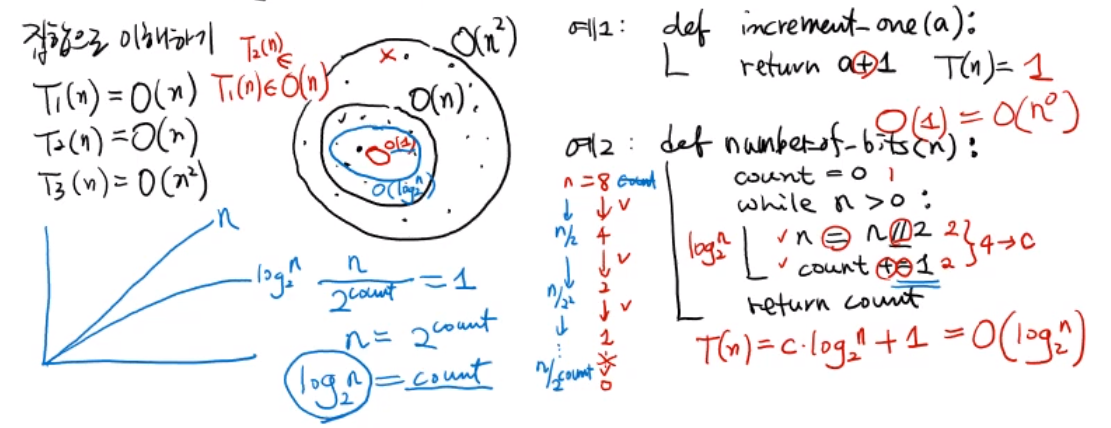 집합으로 이해하기
T₁(n) = O(n)
T₂(n) = O(n)
T₃(n) = O(n²)
T₂(n)
∈
T₁(n) ∈ O(n)
O(n²)
O(n)
O(1)
O(log₂n)
n
log₂n
n / 2^count = 1
n = 2^count
log₂n = count
예1: def increment_one(a):
return a+1
T(n) = 1
O(1) = O(n⁰)
예2: def number_of_bits(n):
count = 0 1
while n > 0:
n = n//2 2
count += 1 2
} 4 → c
log₂n
return count
T(n) = c·log₂n + 1 = O(log₂n)
n = 8 count
n/2 4
n/2² 2
⋮ 1
n/2^count 0